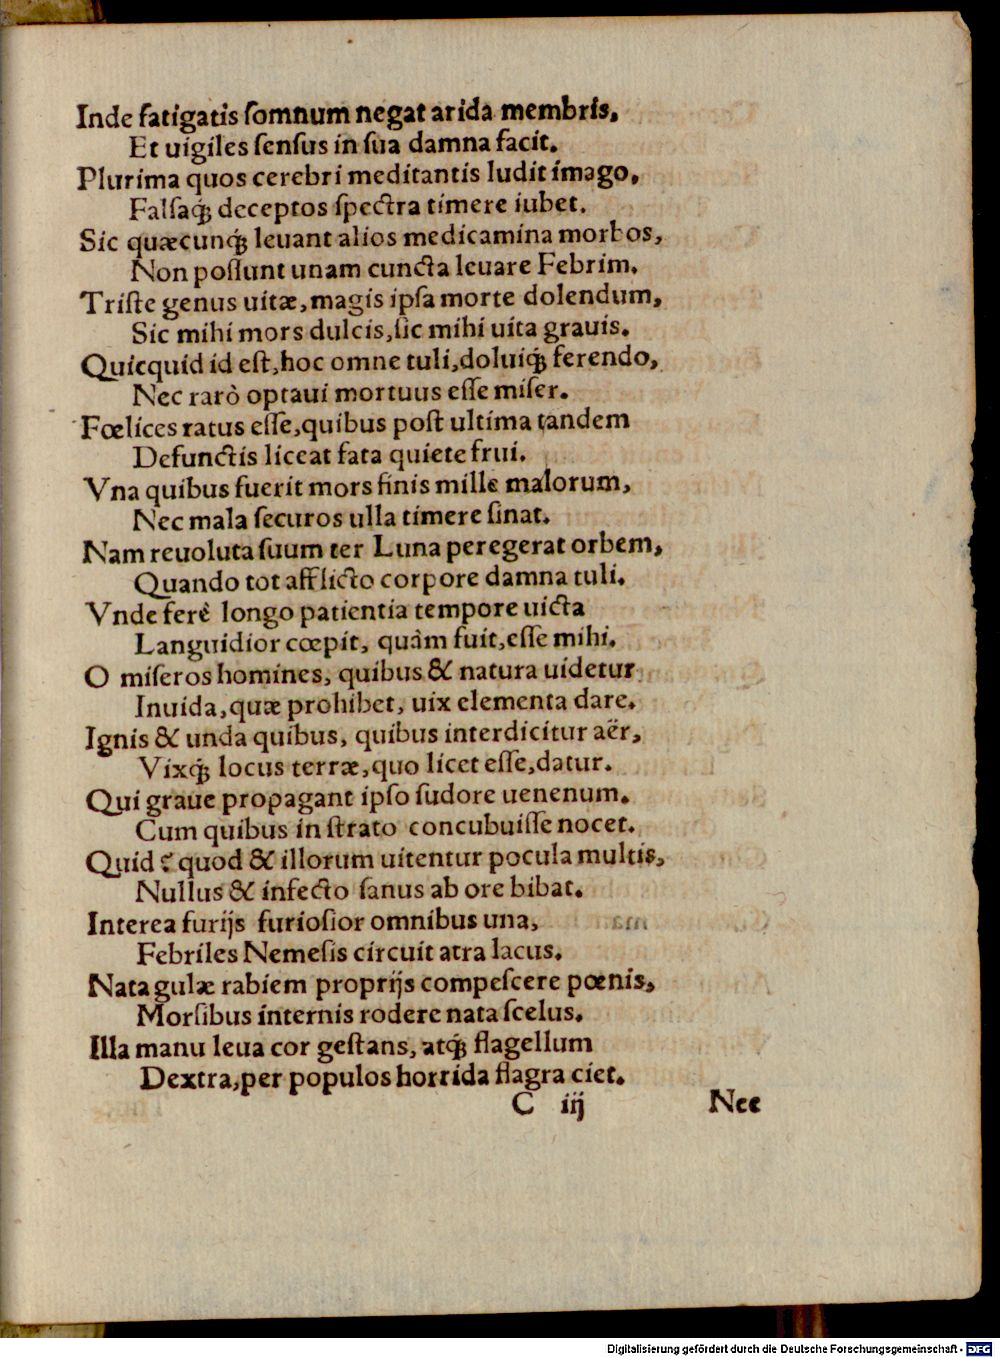 Inde fatigatis ſomnum negat arida membris,
Et uigiles ſenſus in ſua damna facit.
Plurima quos cerebri meditantis ludit imago,
Falſaq́; deceptos ſpectra timere iubet.
Sic quæcunq́; leuant alios medicamina morbos,
Non poſſunt unam cuncta leuare Febrim.
Triſte genus uitæ, magis ipſa morte dolendum,
Sic mihi mors dulcis, ſic mihi uita grauis.
Quicquid id eſt, hoc omne tuli, doluiq́; ferendo,
Nec rarò optaui mortuus eſſe miſer.
Fœlices ratus eſſe, quibus poſt ultima tandem
Defunctis liceat fata quiete frui.
Vna quibus fuerit mors finis mille malorum,
Nec mala ſecuros ulla timere ſinat.
Nam reuoluta ſuum ter Luna peregerat orbem,
Quando tot afflicto corpore damna tuli.
Vnde ferè longo patientia tempore uicta
Languidior cœpit, quàm fuit, eſſe mihi.
O miſeros homines, quibus & natura uidetur
Inuida, quæ prohibet, uix elementa dare.
Ignis & unda quibus, quibus interdicitur aër,
Vixq́; locus terræ, quo licet eſſe, datur.
Qui graue propagant ipſo ſudore uenenum.
Cum quibus in ſtrato concubuiſſe nocet.
Quid? quod & illorum uitentur pocula multis,
Nullus & infecto ſanus ab ore bibat.
Interea furijs furioſior omnibus una,
Febriles Nemeſis circuit atra lacus.
Nata gulæ rabiem proprijs compeſcere pœnis,
Morſibus internis rodere nata ſcelus.
Illa manu leua cor geſtans, atq́; flagellum
Dextra, per populos horrida flagra ciet.
C iij Nec
Digitalisierung gefördert durch die Deutsche Forschungsgemeinschaft - DFG